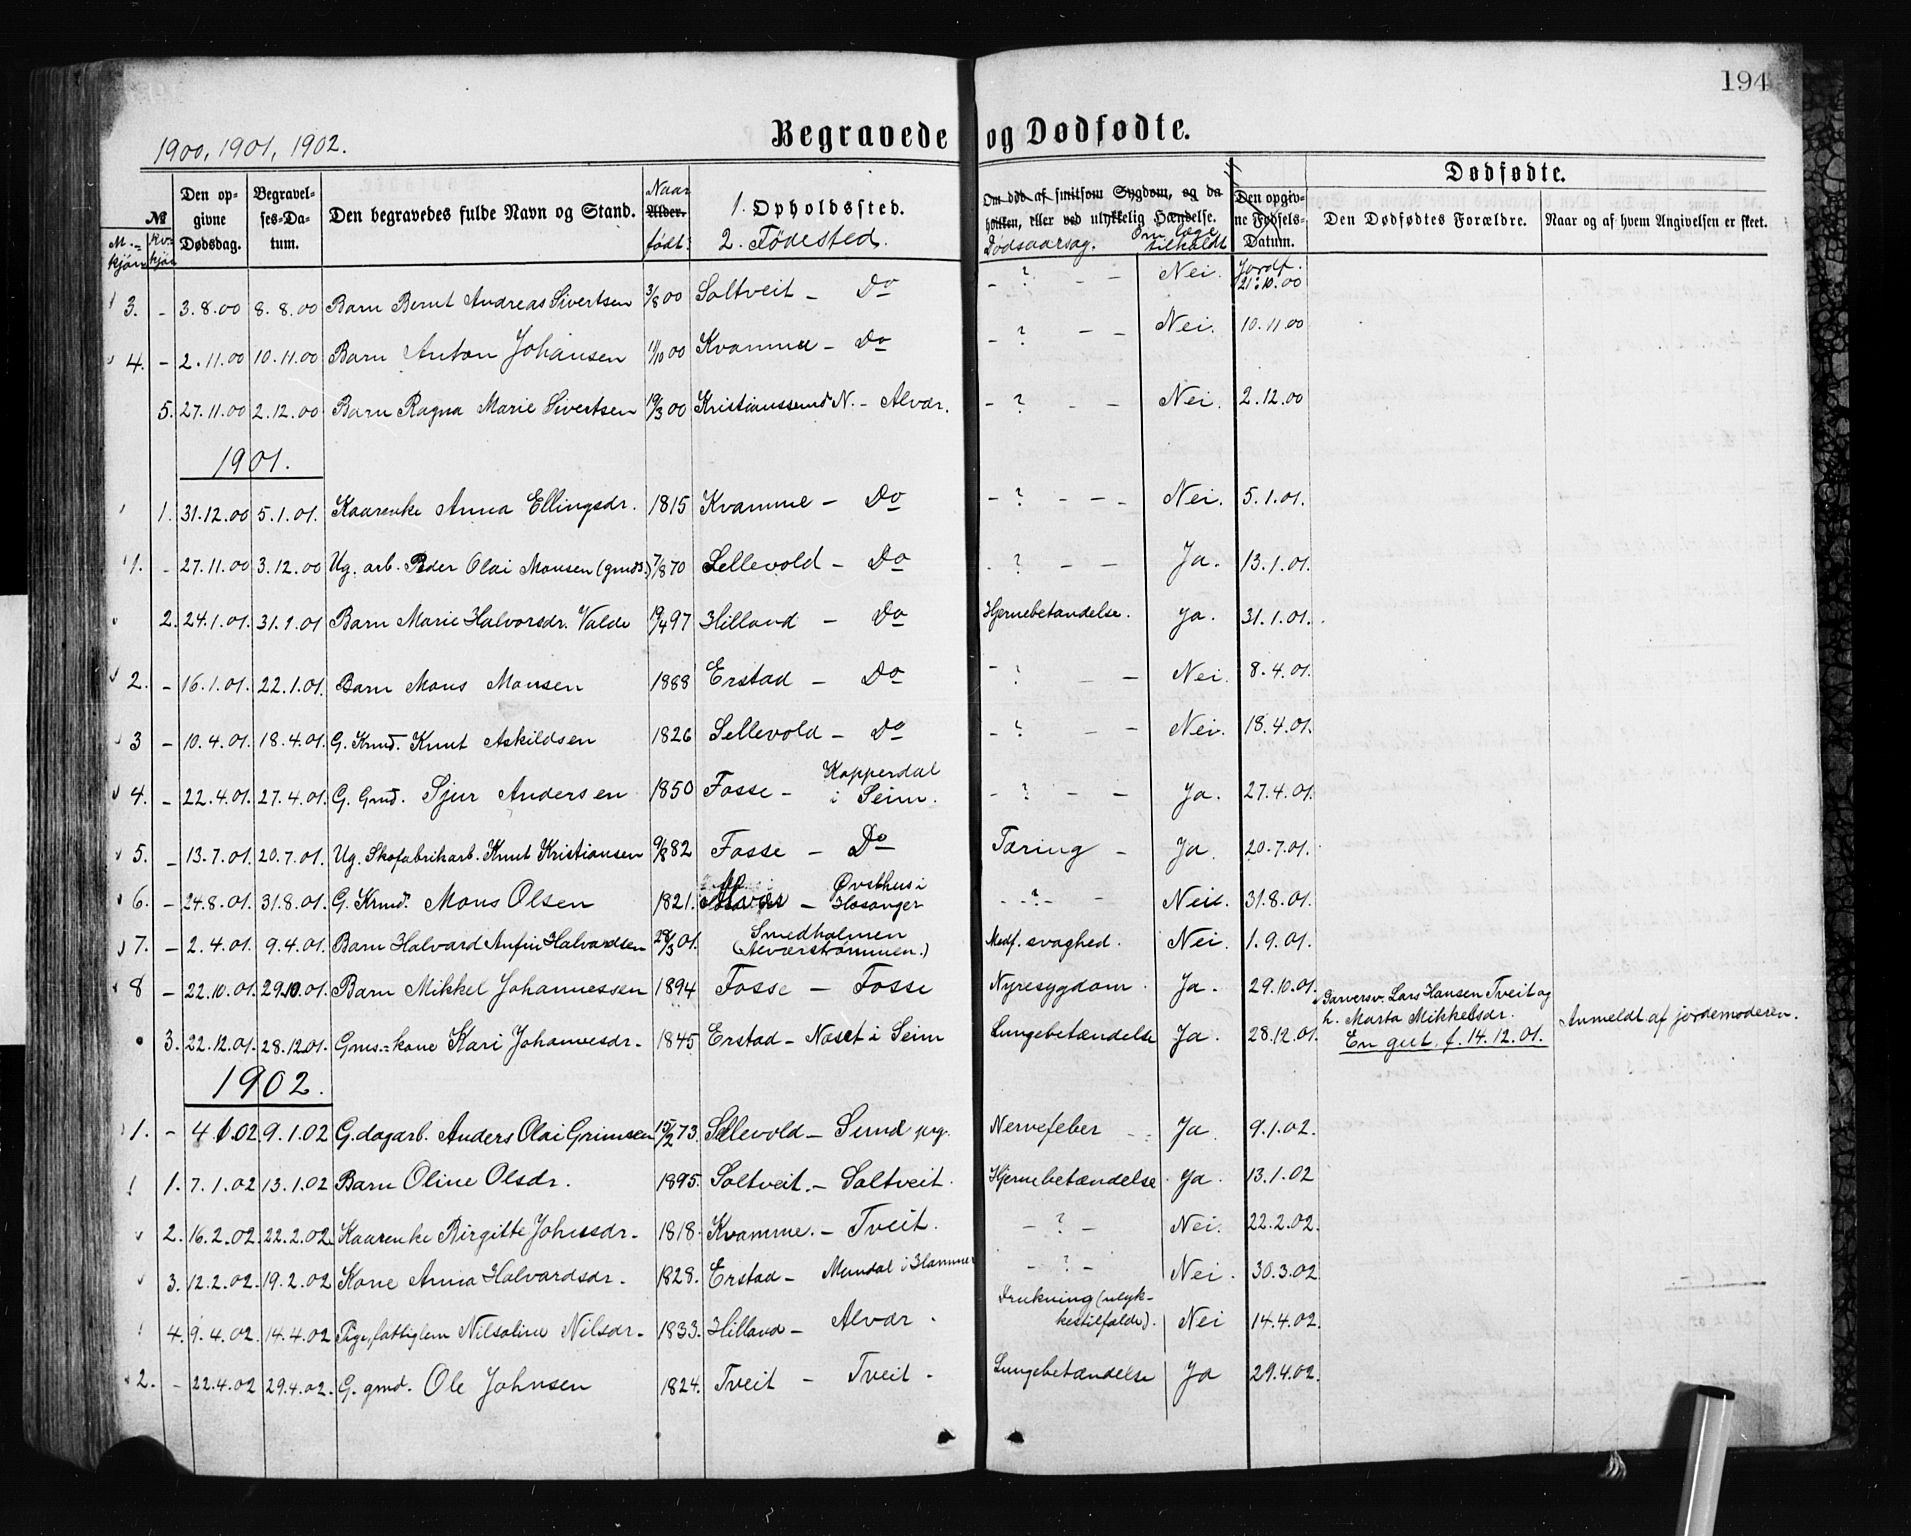 194
1900, 1901, 1902.
Begravede og Dødfødte.
№
M.-kjøn
Kv.kjøn
Den opgivne Dødsdag.
Begravelses-Datum.
Den begravedes fulde Navn og Stand.
Naar Alder. født:
1. Opholdssted.
2. Fødested.
Om død af smitsom Sygdom, og da hvilken, eller ved ulykkelig Hændelse.
Dødsaarsag.
Om læge tilkaldt
Den opgivne Fødsels-Datum.
Jordf.
Dødfødte.
Den Dødfødtes Forældre.
Naar og af hvem Angivelsen er skeet.
3. - 3.8.00 8.8.00 Barn Bernt Andreas Sivertsen 3/8 00 Soltveit - Do - ? - Nei. 21.10.00
4. - 2.11.00 10.11.00 Barn Anton Johansen 11/10 00 Kvamme - Do - ? - - Nei. 10.11.00
5. 27.11.00 2.12.00 Barn Ragna Marie Sivertsen 19/3 00 Kristianssund N. - Alvær. - ? - - Nei. 2.12.00
1901.
1. 31.12.00 5.1.01. Kaarenke Anna Ellingsdr. 1815 Kvamme - Do - ? - - - Nei. 5.1.01.
1. - 27.11.00 3.12.00 Ug. arb. Peder Olai Monsen (gmds.) 7/8 70 Sellevold - Do - ? - - Ja. 13.1.01.
2. 24.1.01. 31.1.01 Barn Marie Halvorsdr. Valde 19/4 97 Hilland - Do Hjernebetændelse. Ja. 31.1.01.
2. - 16.1.01. 22.1.01. Barn Mons Monsen 1888 Erstad - Do - ? - - Nei. 8.4.01.
3 - 10.4.01. 18.4.01. G. Krmd. Knut Askildsen 1826 Sellevold - Do - ? - - Nei. 18.4.01.
4. - 22.4.01. 27.4.01. G. Gmd. Sjur Andersen 1850 Fosse - Kopperdal i Seim. - ? - - Ja. 27.4.01.
5. - 13.7.01. 20.7.01. Ug. Skofabrikarb. Knut Kristiansen 9/8 82 Fosse - Do Tæring - Ja. 20.7.01.
6. - 24.8.01. 31.8.01. G. Krmd. Mons Olsen 1821. Alvær - Østhus i Hosanger - ? - - Nei. 31.8.01.
7. - 2.4.01. 9.4.01. Barn Halvard Anfin Halvardsen 28/3 01. Smedholmen (Alværstrømmen.) Medf. svaghed. Nei. 1.9.01.
8 - 22.10.01. 29.10.01. Barn Mikkel Johannessen 1894 Fosse - Fosse Nyresygdom. Ja. 29.10.01.
Garversv. Lars Hansen Tveit og
h. Marta Mikkelsdr.
En gut. f. 14.12.01.
Anmeldt af jordemoderen.
3. 22.12.01. 28.12.01. Gmds.=kone Kari Johannesdr. 1845 Erstad - Naset i Seim Lungebetændelse Ja. 28.12.01.
1902.
1. - 4.1.02. 9.1.02 G. dagarb. Anders Olai Grimsen 15/2 73. Sellevold - Sund prg. Nervefeber - - Ja. 9.1.02.
1. 7.1.02 13.1.02 Barn Oline Olsdr. 1895. Soltveit. - Soltveit. Hjernebetændelse. Ja. 13.1.02
2. 16.2.02. 22.2.02. Kaarenke Birgitte Johnsdr. 1818. Kvamme. - Tveit. - ? - Nei. 22.2.02.
3. 12.2.02. 19.2.02 Kone Anna Halvardsdr. 1828. Erstad - Mundal i Hammer - ? - Nei. 30.3.02
4. 9.4.02. 14.4.02 Pige, fattiglem Nilsolina Nilsdr. 1833. Hilland - Alvær. Drukning (ulykkestilfælde). Nei 14.4.02.
2. - 22.4.02 29.4.02. G. gmd. Ole Johnsen 1824. Tveit - Tveit. Lungebetændelse Ja 29.4.02.